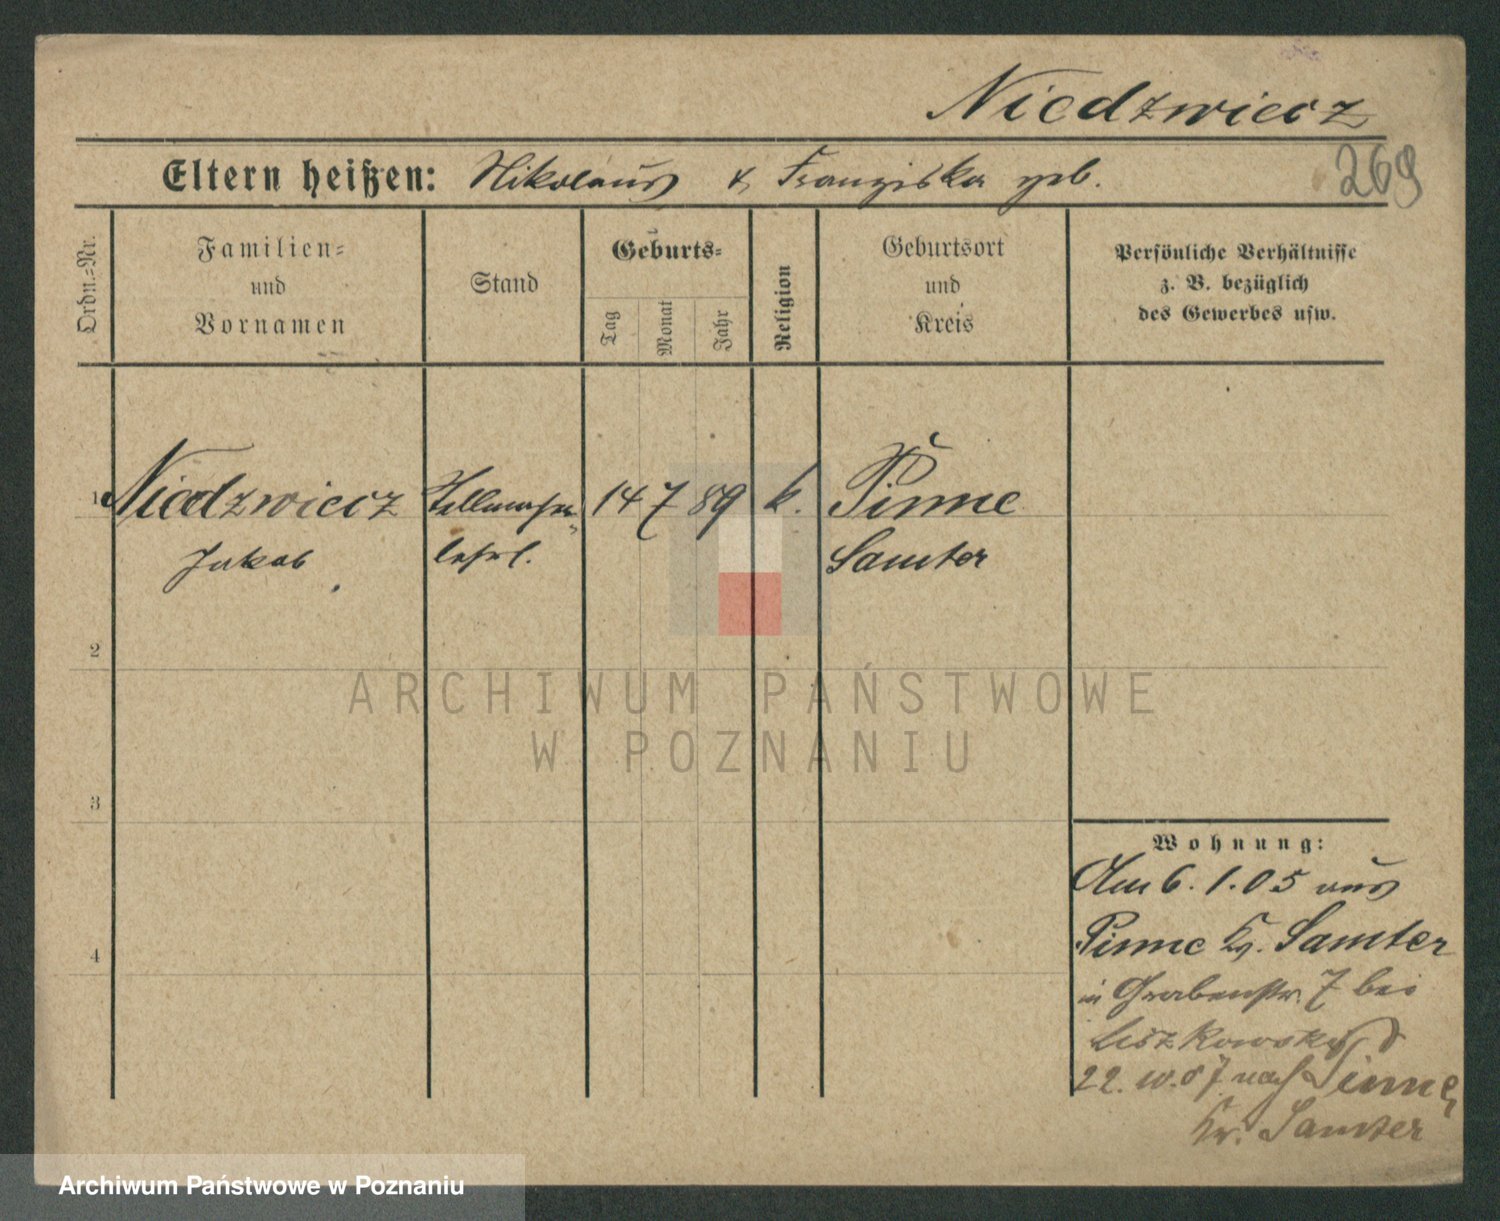 Niedzwiecz
Eltern heißen: Nikolaus & Franziska geb.
269
Ordn.-Nr.
Familien-
und
Vornamen
Stand
Geburts-
Tag
Monat
Jahr
Religion
Geburtsort
und
Kreis
Persönliche Verhältnisse
z. B. bezüglich
des Gewerbes usw.
1 Niedzwiecz Stellmacher- 14 7 89 k. Pinne
Jakob lehrl. Samter
2
3
4
Wohnung:
Am 6. 1. 05 aus
Pinne Kr. Samter
in Grabenstr. 7 bei
22. 10. 07 nach Pinne,
Kr. Samter
ARCHIWUM PAŃSTWOWE
W POZNANIU
Archiwum Państwowe w Poznaniu